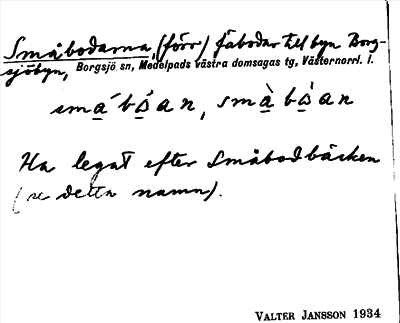 Småbodarna, (förr) fäbodar till byn Borg-
sjöbyn, Borgsjö sn, Medelpads västra domsagas tg, Västernorrl. l.
smá̱ bó̱an, smà̱ bò̱an
Ha legat efter Småbodbäcken
(se detta namn).
VALTER JANSSON 1934